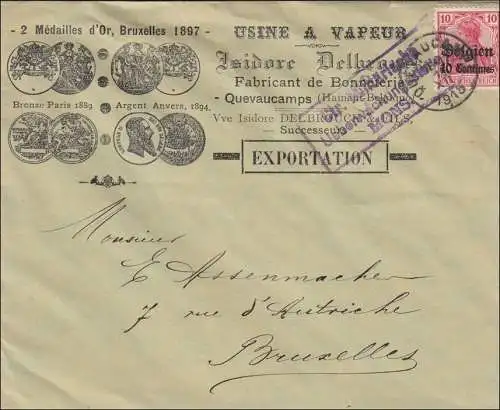 - 2 Médailles d'Or, Bruxelles 1897 -
USINE A VAPEUR
Isidore Delbrouck
Fabricant de Bonneterie
- Quevaucamps (Hainaut-Belgique)
Bronze Paris 1889. Argent Anvers, 1894.
Vve Isidore DELBROUCK & FILS,
Successeurs
EXPORTATION
10 10
Belgien
10 Centimes
Monsieur
E Assenmacher
7 rue d'Autriche
Bruxelles